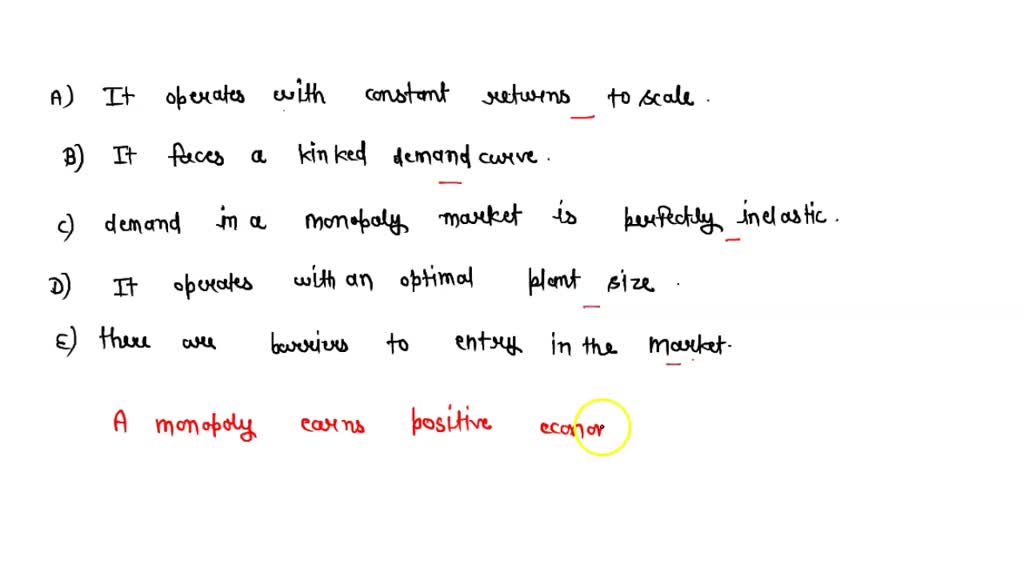 A) It operates with constant returns to scale.
B) It faces a kinked demand curve.
C) demand in a monopoly market is perfectly inelastic.
D) It operates with an optimal plant size.
E) there are barriers to entry in the market.
A monopoly earns positive econom